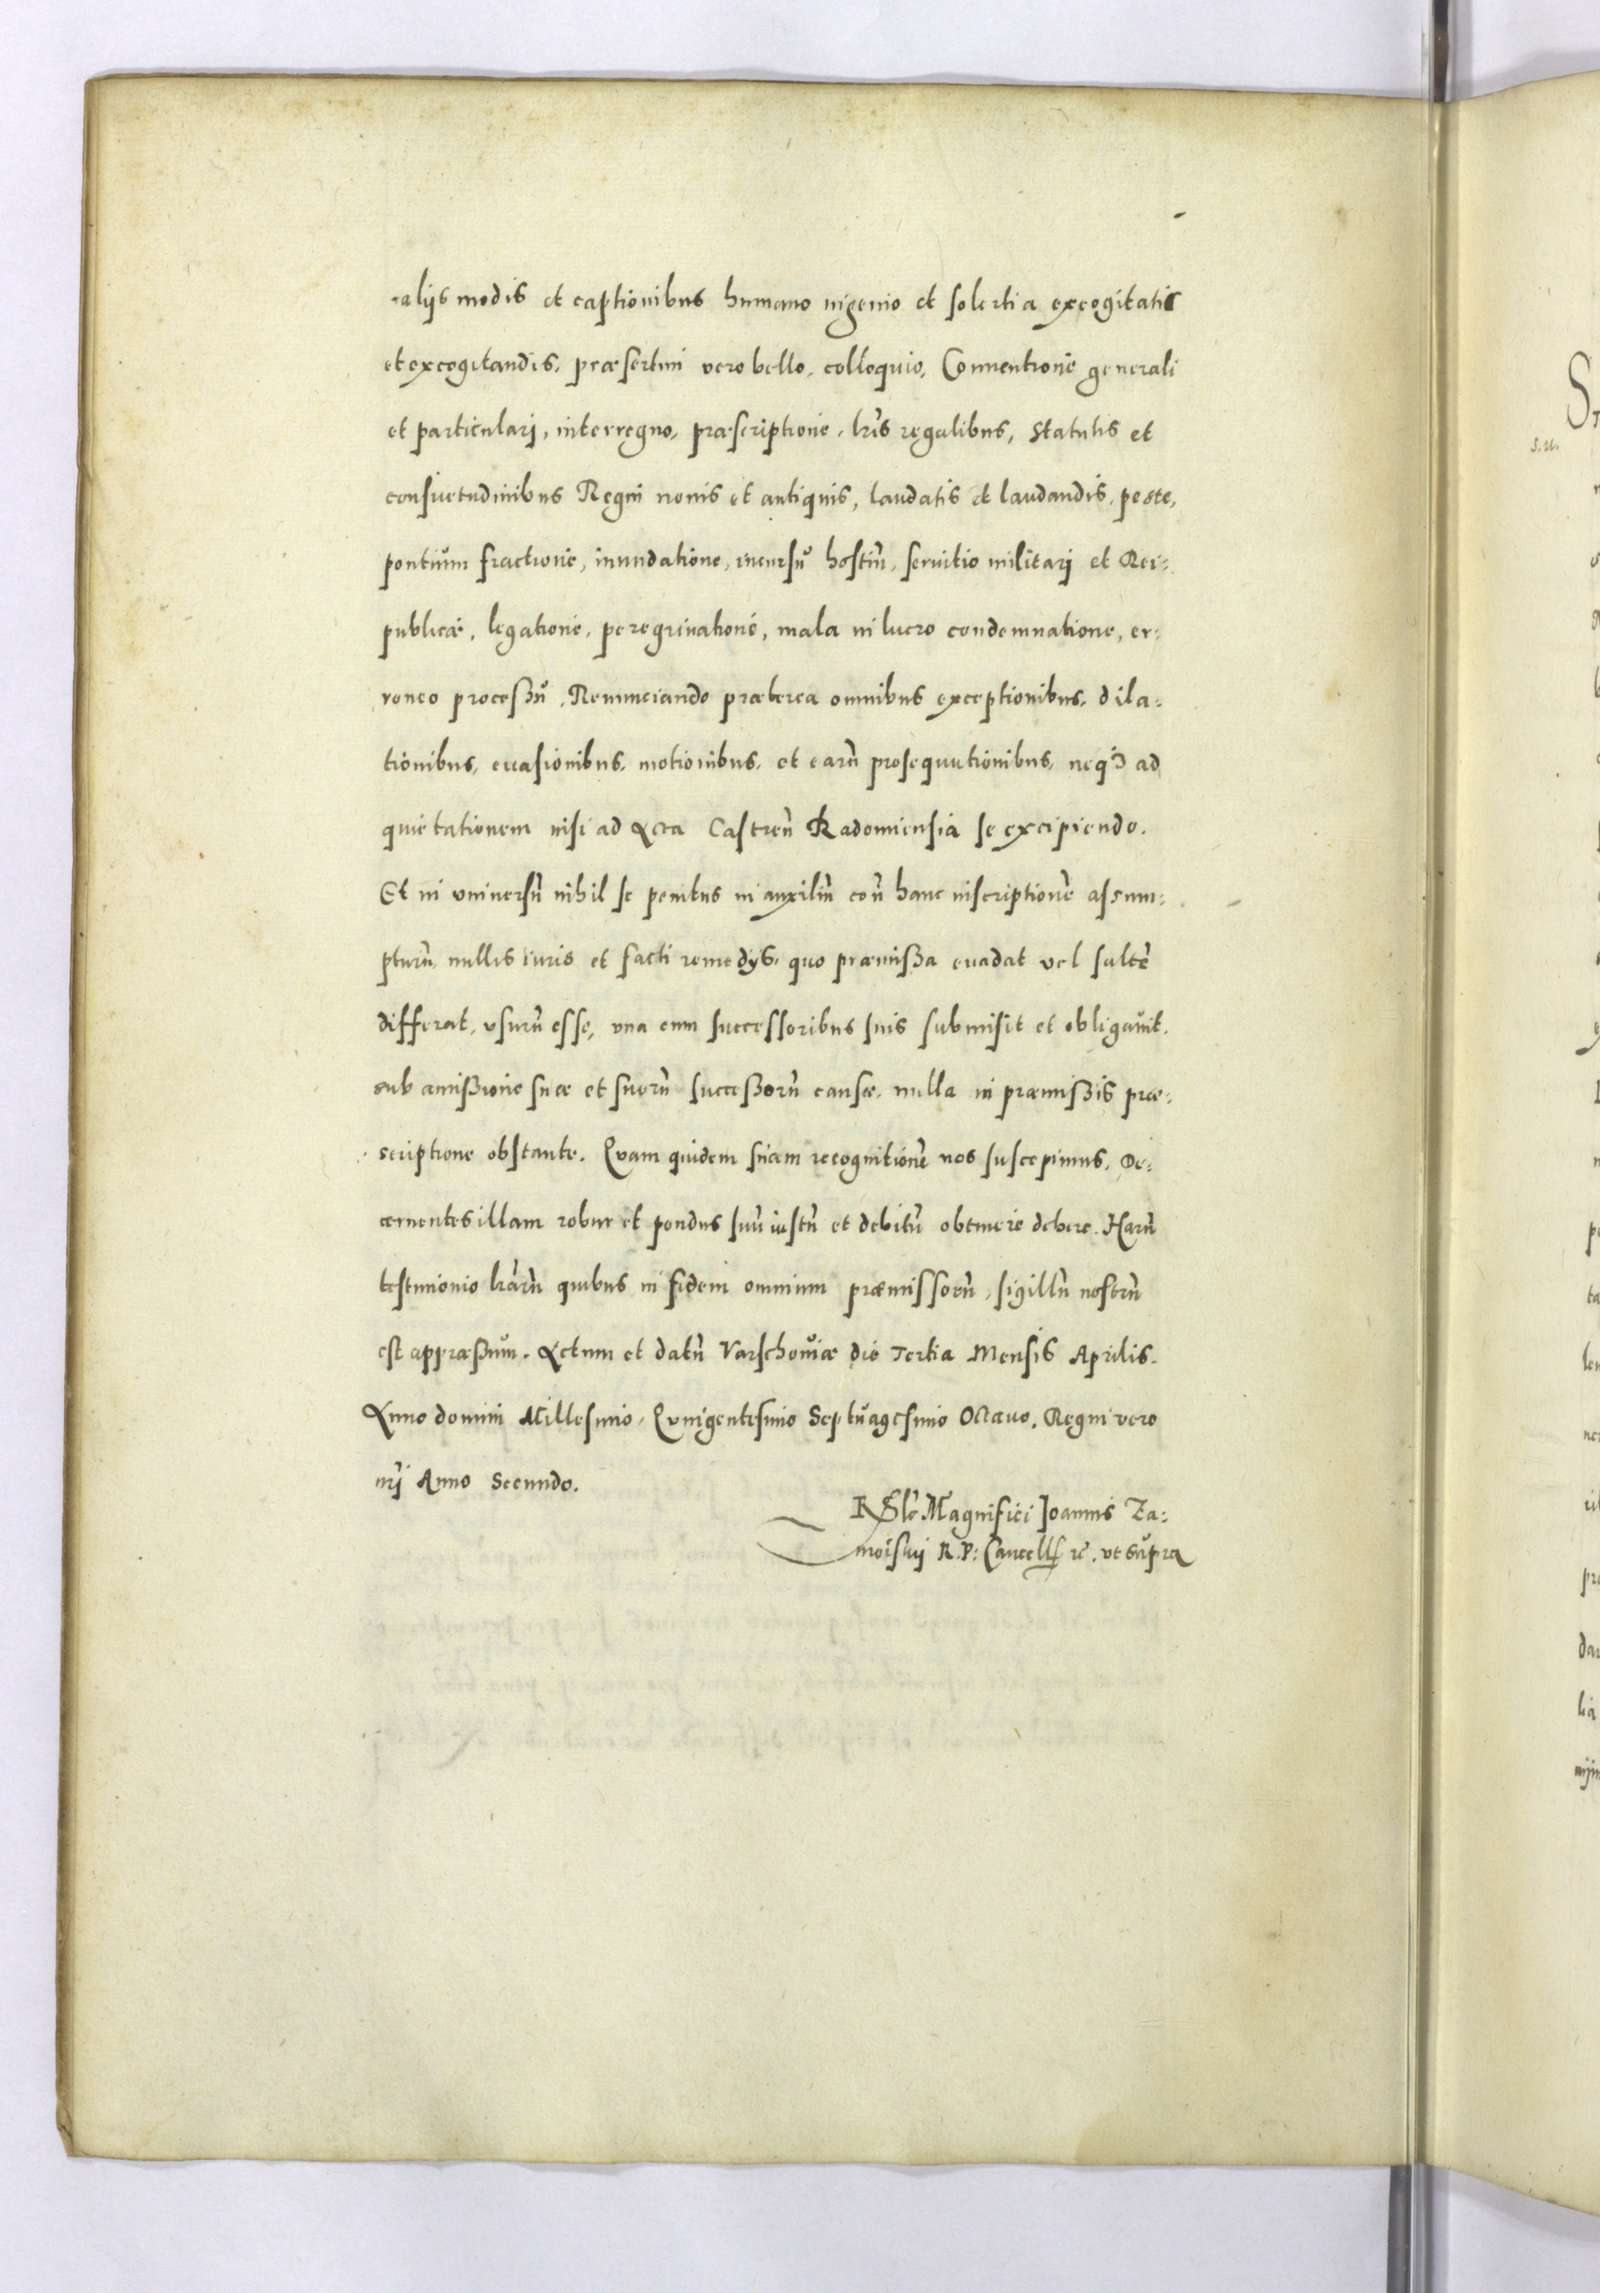 alijs modis et captionibus humano ingenio et solertia excogitatis
et excogitandis, præsertim vero bello, colloquio, Conuentione generali
et particulari, interregno, præscriptione, lrīs regalibus, Statutis et
consuetudinibus Regni nouis et antiquis, laudatis et laudandis, peste,
pontium fractione, inundatione, incursu hostiū, seruitio militari et Rei-
publicæ, legatione, peregrinatione, mala in lucro condemnatione, er-
roneo processu, Renunciando præterea omnibus exceptionibus, dila-
tionibus, euasionibus, motionibus, et earū prosequutionibus, neqз ad
quietationem nisi ad Acta Castreñ Radomiensia se excipiendo.
Et in vniuersū nihil se penitus in auxiliū coñ hanc inscriptionē assum-
pturū, nullis iuris et facti remedijs, quo præmissa euadat vel saltē
differat, vsurū esse, vna cum successoribus suis submisit et obligauit.
sub amissione suæ et suorū successorū causæ, nulla in præmissis præ-
scriptione obstante. Quam quidem suam recognitionē nos suscepimus, De-
cernentes illam robur et pondus suū iustū et debitū obtinere debere. Harū
testimonio lrārū quibus in fidem omnium præmissorū, sigillū nostrū
est appræssum. Actum et datū Varschouiæ die Tertia Mensis Aprilis.
Anno domini Millesimo, Quingentesimo Septuagesimo Octauo, Regni vero
nrī Anno Secundo.
Rlō Magnifici Joannis Za-
moiskij R. P: Cancell rē. vt supra
S
s. u.